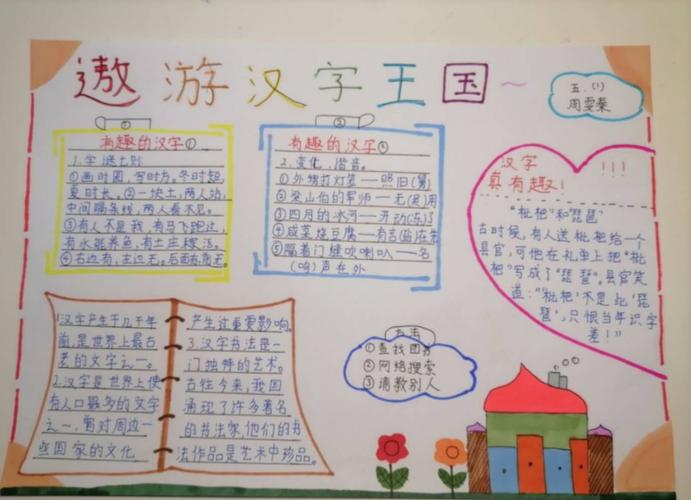 遨游汉字王国~
五.(1)
周雯蓁
①
有趣的汉字①
1.字谜七则
①画时圆,写时方,冬时短,
夏时长。②一块土,两人站,
中间隔条线,两人看不见。
③有人不是我,有马飞跑过,
有水能养鱼,有土庄稼活。
④右边有,左边无。后面有
②
有趣的汉字②
2.变化、谐音。
①外甥打灯笼——照旧(舅)
②梁山伯的军师——无(吴)用
③四月的冰河——开动(冻)了
④咸菜烧豆腐——有言(盐)在先
⑤隔着门缝吹喇叭——名
(鸣)声在外
汉字
真有趣! !!!
"枇杷"和"琵琶"
古时候,有人送枇杷给一个
县官,可他在礼单上把"枇
杷"写成了"琵琶"。县官笑
道:"'枇杷'不是此'琵
琶',只恨当年识字
差!"
1.汉字产生于几千年
前,是世界上最古
老的文字之一。
2.汉字是世界上使
用人口最多的文字
之一,曾对周边一
些国家的文化
产生过重要影响。
3.汉字书法是一
门独特的艺术。
古往今来,我国
涌现了许多著名
的书法家,他们的书
法作品是艺术中珍品。
办法
①查找图书
②网络搜索
③请教别人